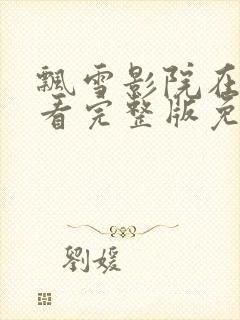 飘雪影院在
看完整版免
劉媛